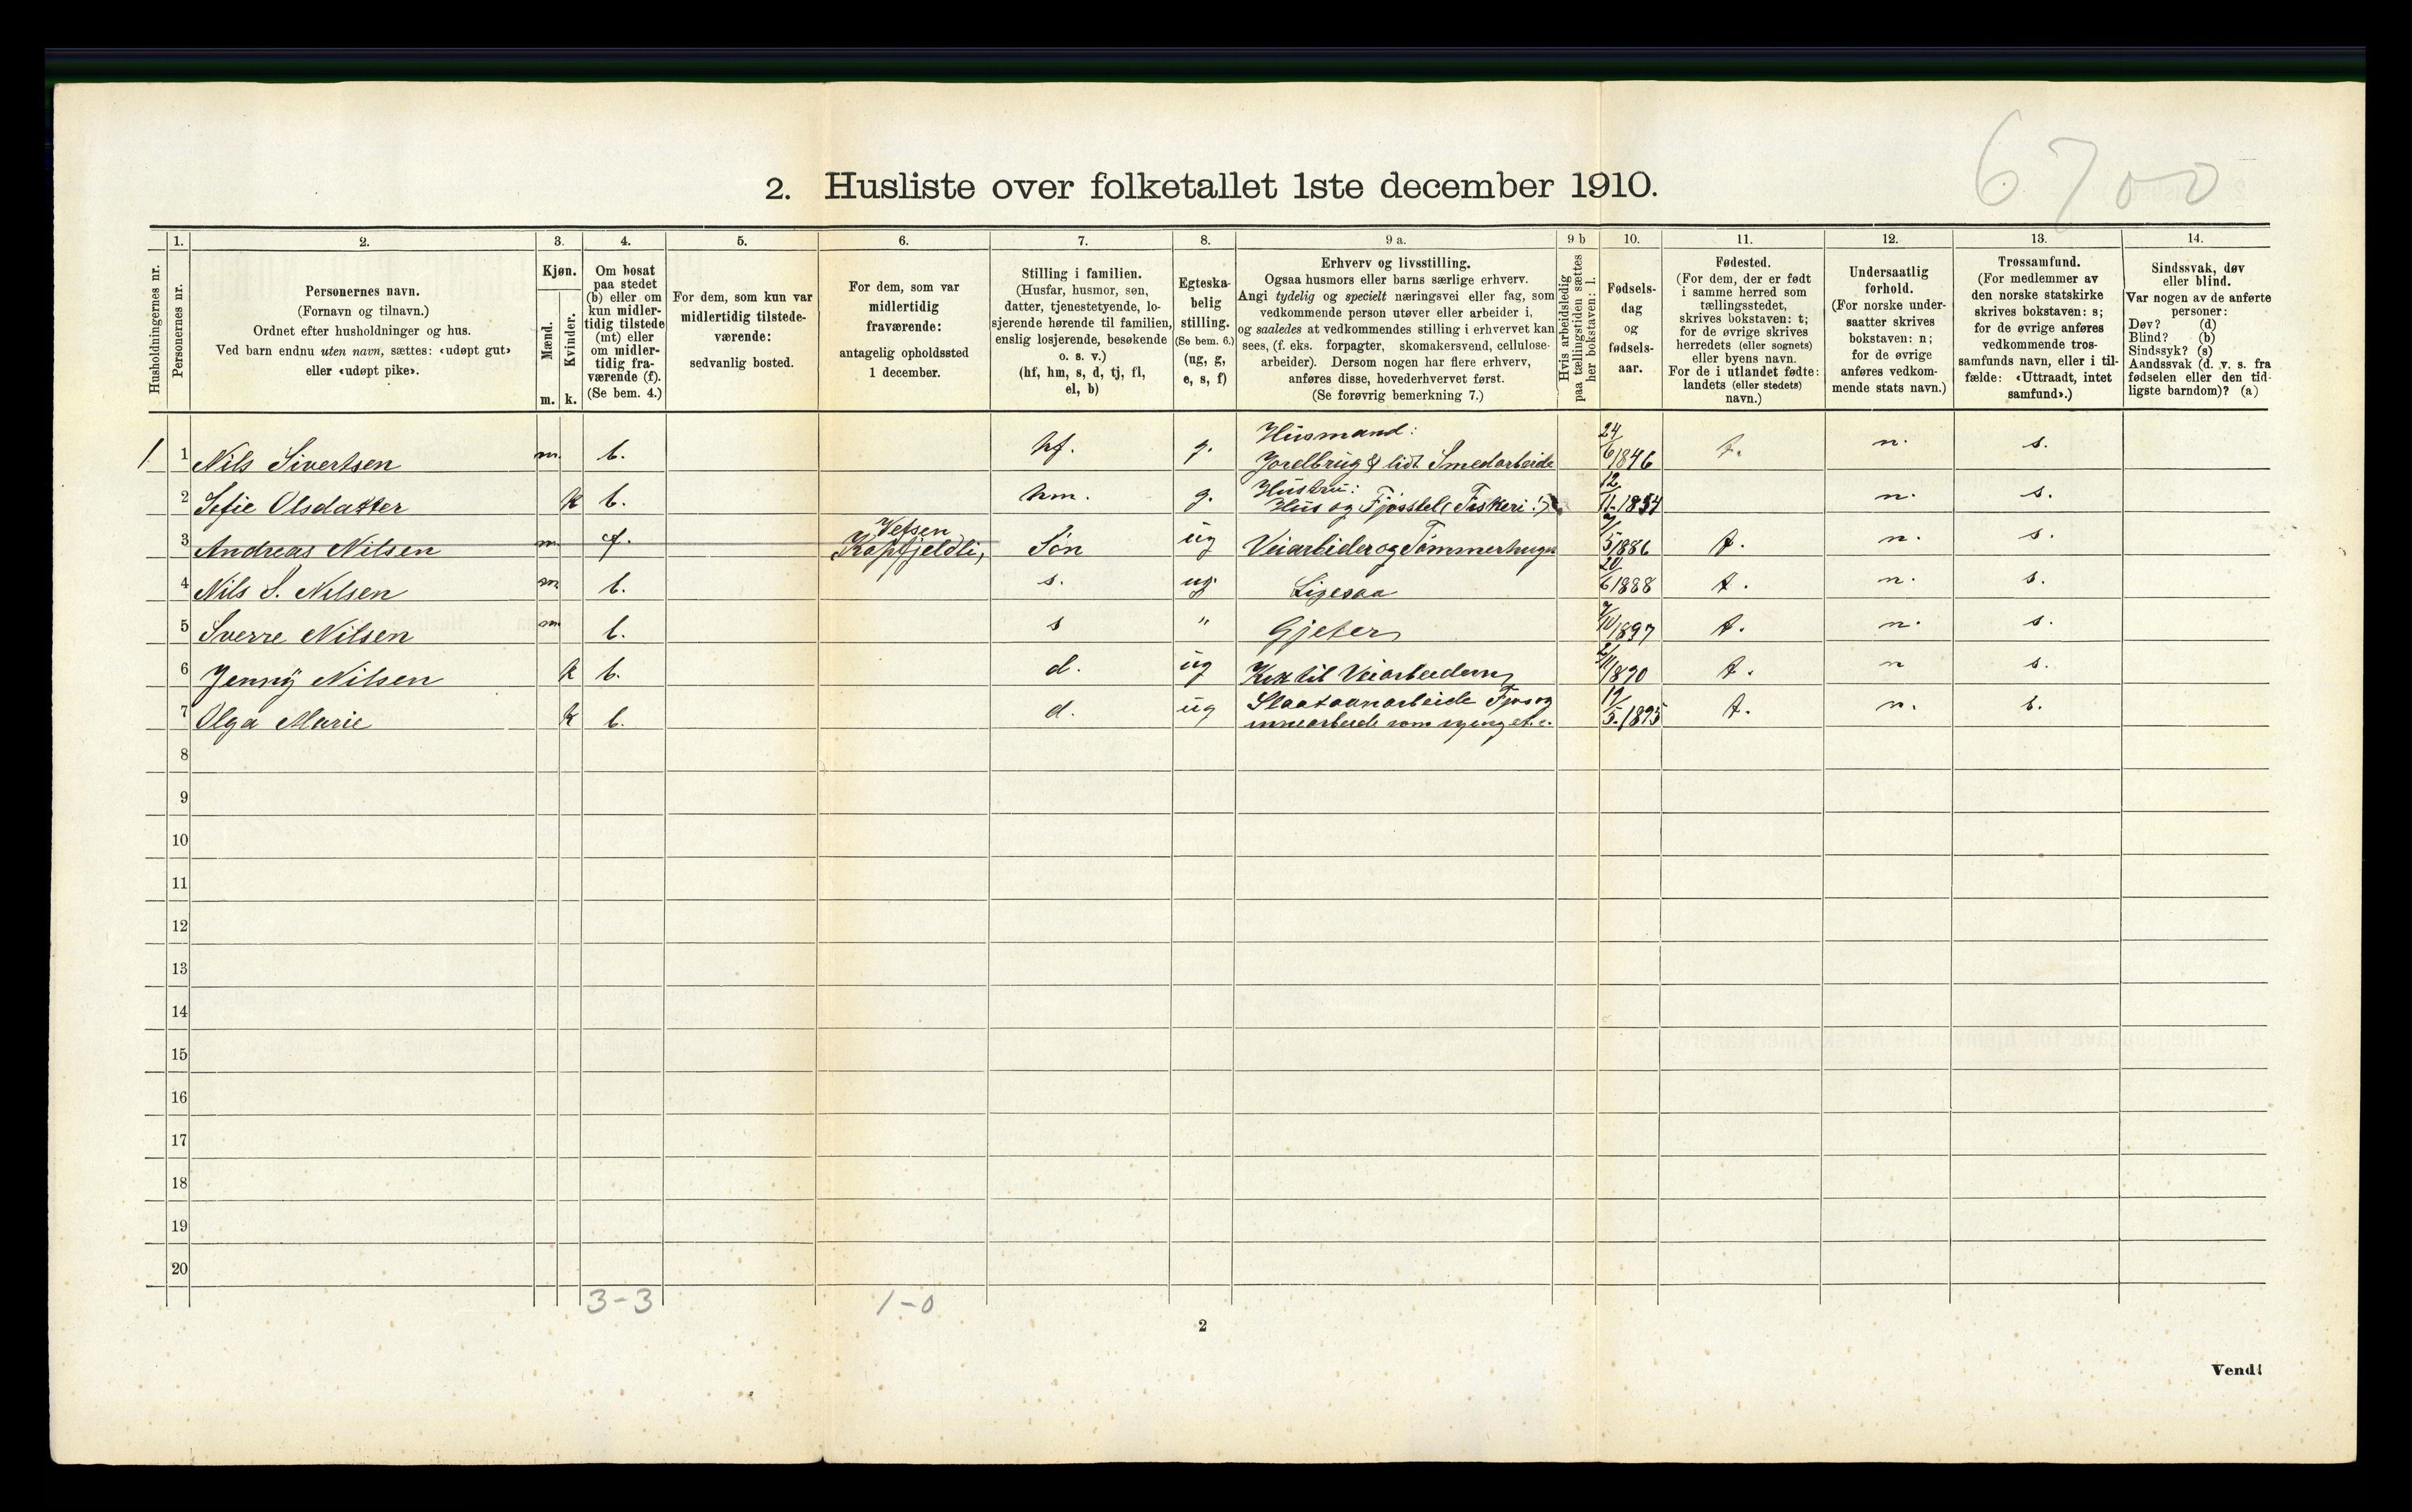 6700
2. Husliste over folketallet 1ste december 1910.
Husholdningernes nr.
1.
Personernes nr.
2.
Personernes navn.
(Fornavn og tilnavn.)
Ordnet efter husholdninger og hus.
Ved barn endnu uten navn, sættes: «udøpt gut»
eller «udøpt pike».
3.
Kjøn.
Mænd.
Kvinder.
m. k.
4.
Om bosat
paa stedet
(b) eller om
kun midler-
tidig tilstede
(mt) eller
om midler-
tidig fra-
værende (f).
(Se bem. 4.)
5.
For dem, som kun var
midlertidig tilstede-
værende:
sedvanlig bosted.
6.
For dem, som var
midlertidig
fraværende:
antagelig opholdssted
1 december.
7.
Stilling i familien.
(Husfar, husmor, søn,
datter, tjenestetyende, lo-
sjerende hørende til familien,
enslig losjerende, besøkende
o. s. v.)
(hf, hm, s, d, tj, fl,
el, b)
8.
Egteska-
belig
stilling.
(Se bem. 6.)
(ug, g,
e, s, f)
9 a.
Erhverv og livsstilling.
Ogsaa husmors eller barns særlige erhverv.
Angi tydelig og specielt næringsvei eller fag, som
vedkommende person utøver eller arbeider i,
og saaledes at vedkommendes stilling i erhvervet kan
sees, (f. eks. forpagter, skomakersvend, cellulose-
arbeider). Dersom nogen har flere erhverv,
anføres disse, hovederhvervet først.
(Se forøvrig bemerkning 7.)
9 b
Hvis arbeidsledig
paa tællingstiden sættes
her bokstaven: l.
10.
Fødsels-
dag
og
fødsels-
aar.
11.
Fødested.
(For dem, der er født
i samme herred som
tællingsstedet,
skrives bokstaven: t;
for de øvrige skrives
herredets (eller sognets)
eller byens navn.
For de i utlandet fødte:
landets (eller stedets)
navn.)
12.
Undersaatlig
forhold.
(For norske under-
saatter skrives
bokstaven: n;
for de øvrige
anføres vedkom-
mende stats navn.)
13.
Trossamfund.
(For medlemmer av
den norske statskirke
skrives bokstaven: s;
for de øvrige anføres
vedkommende tros-
samfunds navn, eller i til-
fælde: «Uttraadt, intet
samfund».)
14.
Sindssvak, døv
eller blind.
Var nogen av de anførte
personer:
Døv? (d)
Blind? (b)
Sindssyk? (s)
Aandssvak (d. v. s. fra
fødselen eller den tid-
ligste barndom)? (a)
1 1 Nils Sivertsen m. b. hf. g. Husmand: Jordbrug & lidt Smedarbeide 24/6 1846 t. n. s.
2 Sofie Olsdatter k b. hm. g. Hustru: Hus og Fjøsstel (Fiskeri!) 12/11-1854 n. s.
3 Andreas Nilsen m. f. Vefsen Kapfjeldli, Søn ug Veiarbeider og Tømmerhuger /5 1886 t. n. s.
4 Nils S. Nilsen m b. s. ug. Ligesaa 20/6 1888 t. n. s.
5 Sverre Nilsen m b. s " Gjeter 7/10 1897 t. n. s.
6 Jenny Nilsen k b. d. ug Kok til Veiarbeidern /11 1890 t. n s.
7 Olga Marie k b. d. ug Slaataanarbeide Fjøs og innearbeide som syning et.c. 19/5-1895 t. n. s.
8
9
10
11
12
13
14
15
16
17
18
19
20
3-3 1-0
2
Vend!